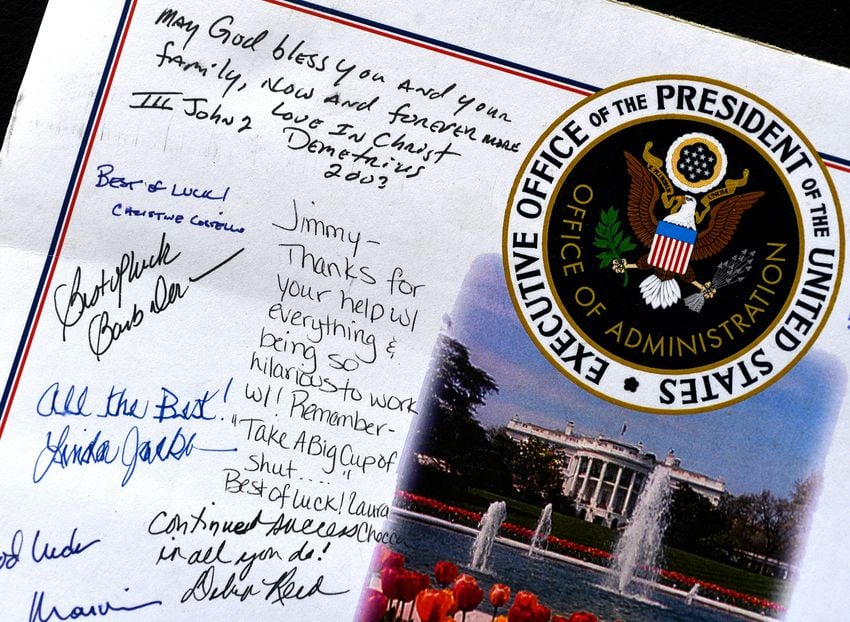 MAY GOD bless you AND your
family, NOW AND forever more
III John 2 LOVE IN CHRIST
DEMETRIUS
2003
EXECUTIVE OFFICE OF THE PRESIDENT OF THE UNITED STATES
OFFICE OF ADMINISTRATION
BEST OF LUCK!
CHRISTINE COSTELLO
Best of luck
Barb
Jimmy-
Thanks for
your help w/
everything &
being so
hilarious to work
w/! Remember-
"Take A Big Cup of
shut....."
Best of luck! Laura
All the Best!
Linda
Continued success
in all you do!
Debra Reed